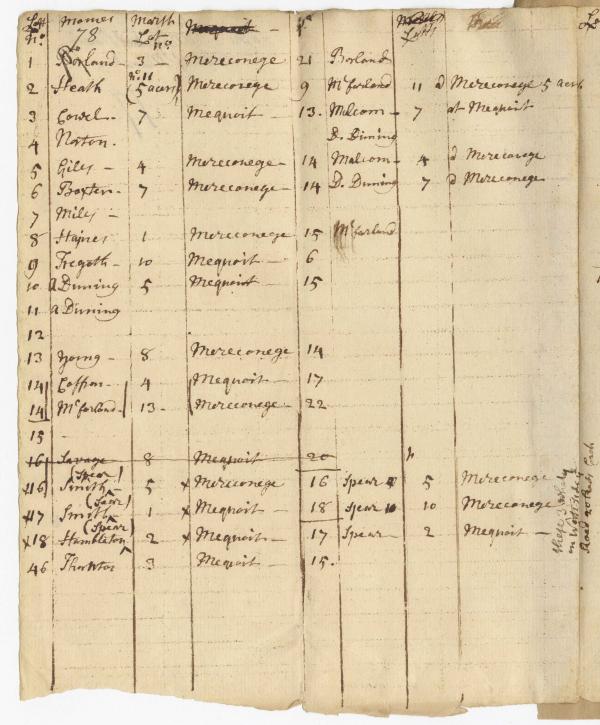 Lott Names Marsh N.o
No. 78 Lot no. Lotts
1 Borland - 3 - Mereconege 21 Borland
2 Heath No. 11 (5 acres) Mereconege 9 McFarland 11 d Mereconege 5 acres
3 Cowel - 7 Mequoit - 13. Malcom - 7 at Mequoit
4 Norton. D. Duning
5 Giles - 4 Mereconege - 14 Malcom - 4 d Mereconege
6 Baxter - 7 Mereconege - 14 D. Duning 7 d Mereconege
7 Miles -
8 Haines 1 Mereconege 15 McFarland
9 Tregoth - 10 Mequoit - 6
10 a Duning 5 Mequoit - 15
11 a Duning
12
13 Young - 8 Mereconege 14
14 Coffron - 4 Mequoit - 17
14 McFarland - 13 - Mereconege - 22
15 -
16 Savage 8 Mequoit 20
(Spear)
x16 Smith - 5 x Mereconege 16 Spear 5 Mereconege
(Spear)
x17 Smith - 1 x Mequoit - 18 Spear 10 Mereconege
(Spear)
x18 Hambleton 2 x Mequoit - 17 Spear - 2 Mequoit -
46 Thornton 3 Mequoit - 15.
these 3
on West side of
Road 20 Rods Each